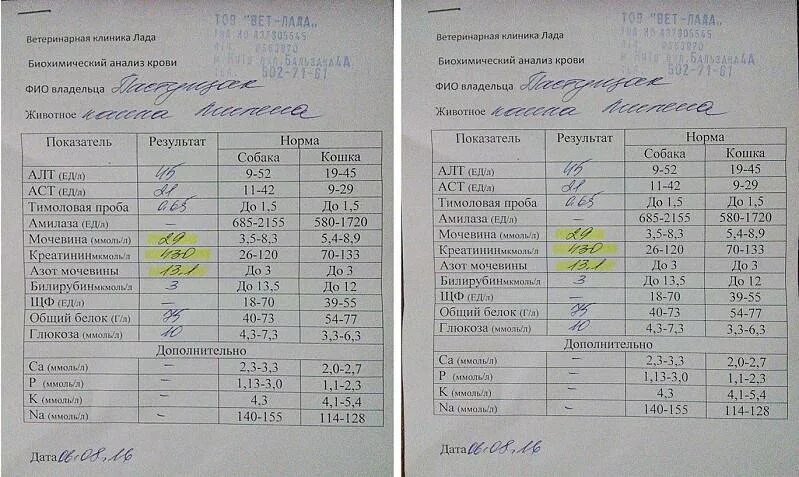 ТОВ "ВЕТ-ЛАДА"
Ветеринарная клиника Лада
Биохимический анализ крови
502-71-61
ФИО владельца
Животное кошка
Показатель Результат Норма
Собака Кошка
АЛТ (ЕД/л) 45 9-52 19-45
АСТ (ЕД/л) 21 11-42 9-29
Тимоловая проба 0,65 До 1,5 До 1,5
Амилаза (ЕД/л) – 685-2155 580-1720
Мочевина (ммоль/л) 29 3,5-8,3 5,4-8,9
Креатинин мкмоль/л 430 26-120 70-133
Азот мочевины 13.1 До 3 До 3
Билирубин мкмоль/л 3 До 13,5 До 12
ЩФ (ЕД/л) – 18-70 39-55
Общий белок (Г/л) 75 40-73 54-77
Глюкоза (ммоль/л) 10 4,3-7,3 3,3-6,3
Дополнительно
Ca (ммоль/л) – 2,3-3,3 2,0-2,7
P (ммоль/л) – 1,13-3,0 1,1-2,3
K (ммоль/л) – 4,3 4,1-5,4
Na (ммоль/л) – 140-155 114-128
Дата 06.08.16
ТОВ "ВЕТ-ЛАДА"
Ветеринарная клиника Лада
Биохимический анализ крови
502-71-61
ФИО владельца
Животное кошка
Показатель Результат Норма
Собака Кошка
АЛТ (ЕД/л) 45 9-52 19-45
АСТ (ЕД/л) 21 11-42 9-29
Тимоловая проба 0,65 До 1,5 До 1,5
Амилаза (ЕД/л) – 685-2155 580-1720
Мочевина (ммоль/л) 29 3,5-8,3 5,4-8,9
Креатинин мкмоль/л 430 26-120 70-133
Азот мочевины 13.1 До 3 До 3
Билирубин мкмоль/л 3 До 13,5 До 12
ЩФ (ЕД/л) – 18-70 39-55
Общий белок (Г/л) 75 40-73 54-77
Глюкоза (ммоль/л) 10 4,3-7,3 3,3-6,3
Дополнительно
Ca (ммоль/л) – 2,3-3,3 2,0-2,7
P (ммоль/л) – 1,13-3,0 1,1-2,3
K (ммоль/л) – 4,3 4,1-5,4
Na (ммоль/л) – 140-155 114-128
Дата 06.08.16